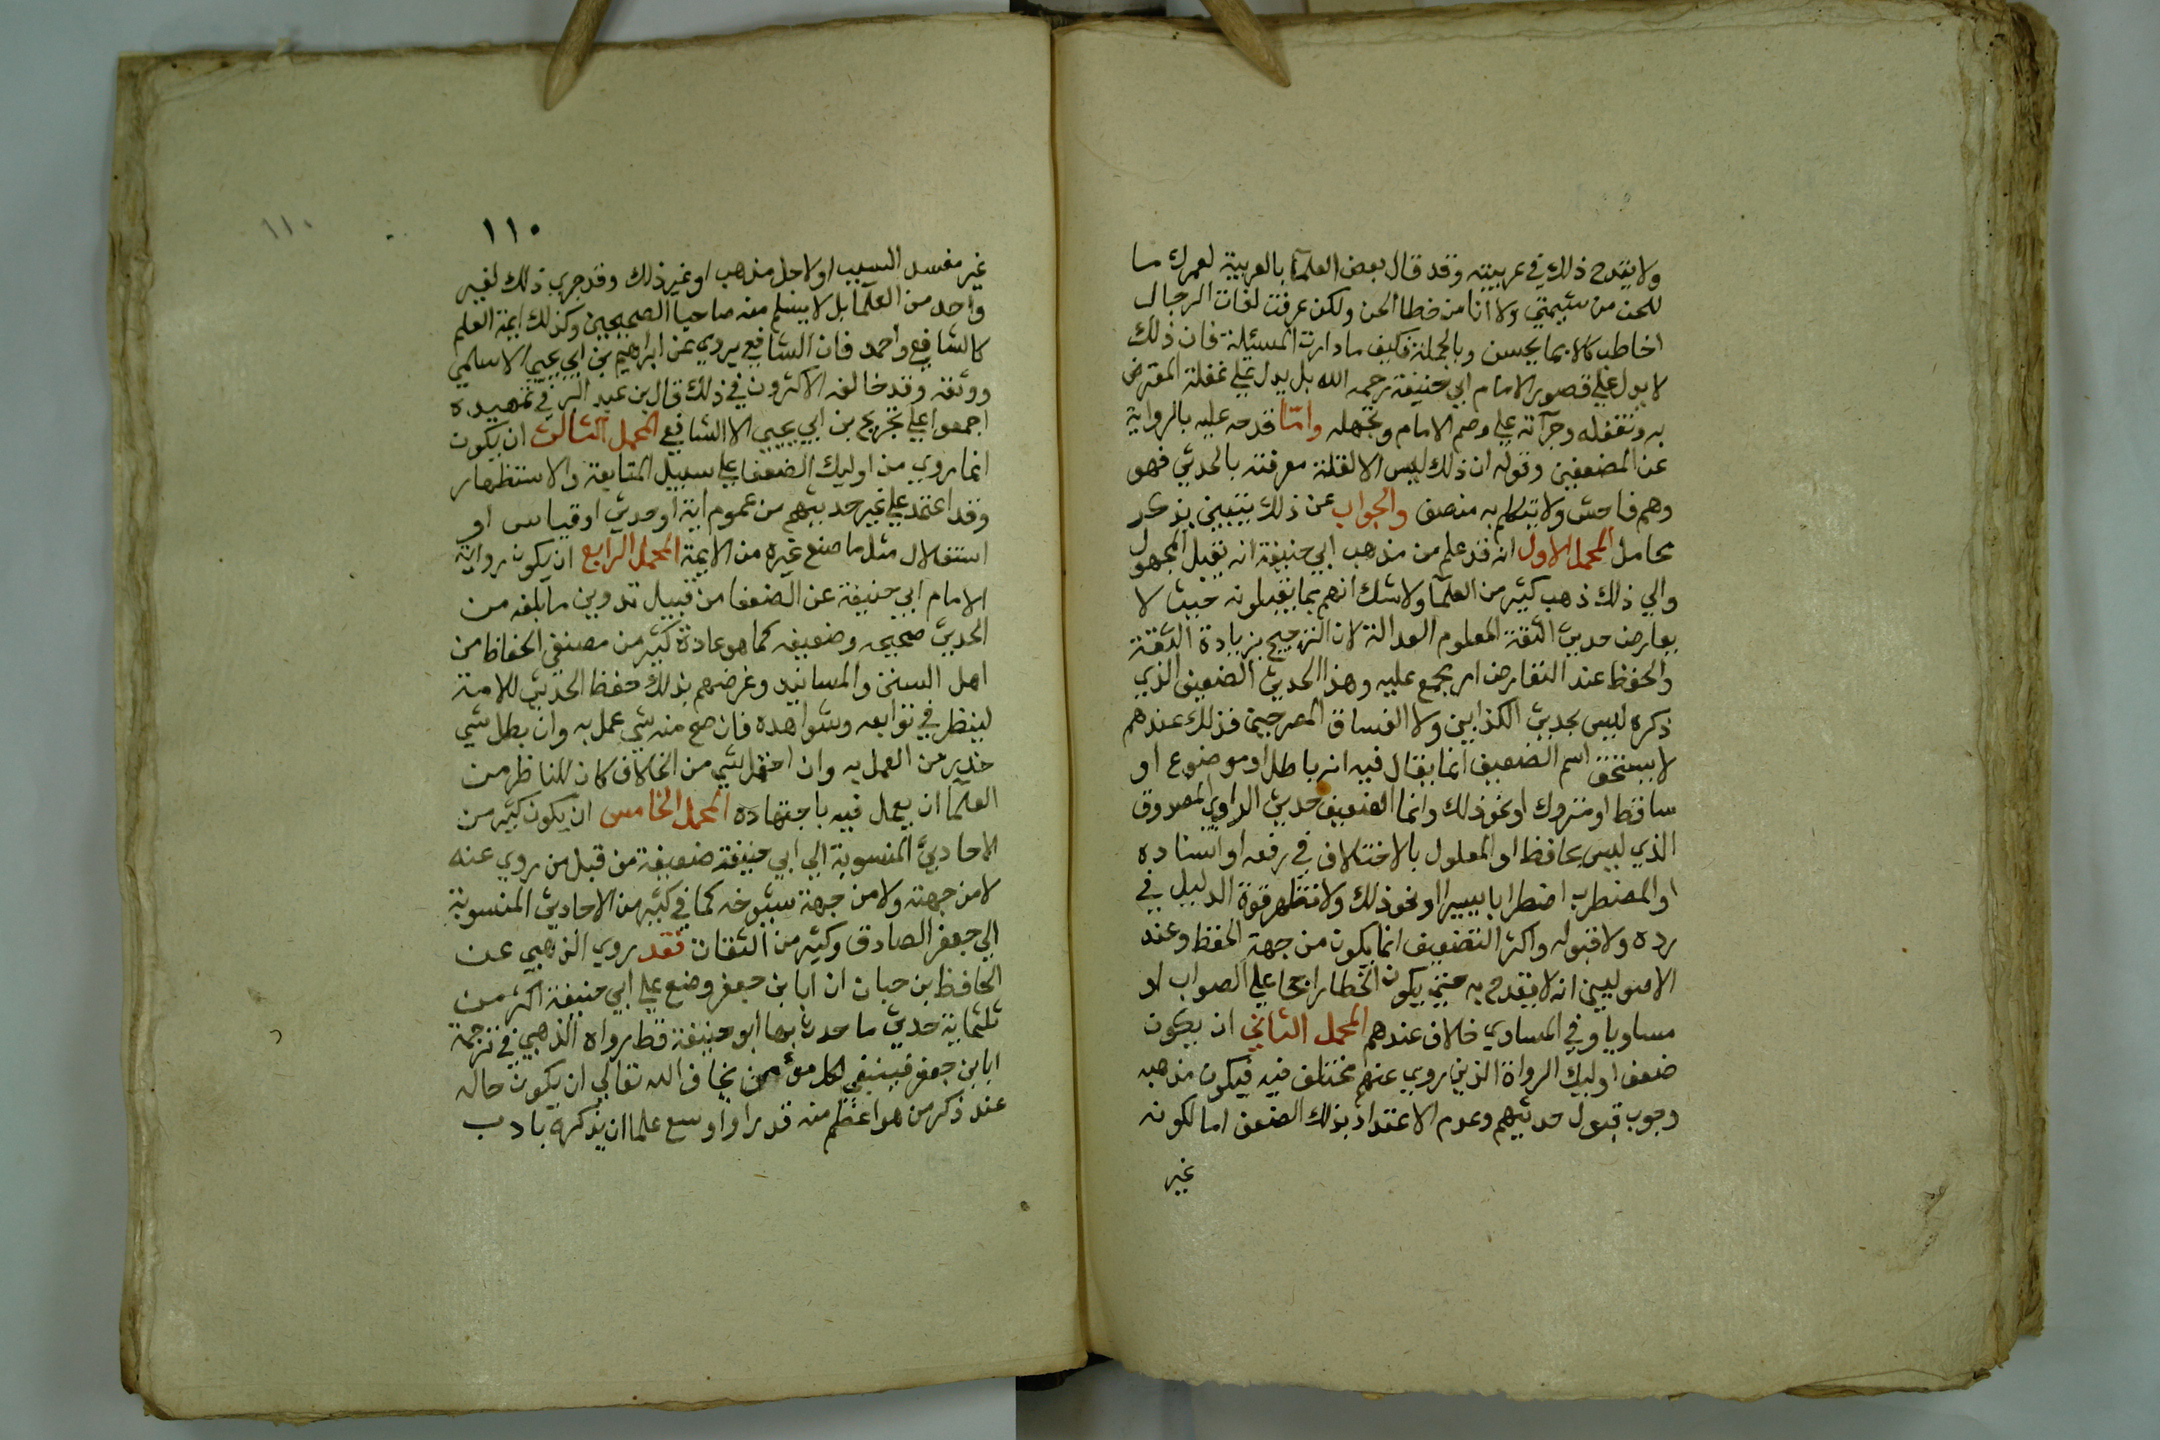 ولا يقدح ذلك في عربيته وقد قال بعض العلمآ بالعربية لعمرك ما
للحن من شيمتي ولا انا من خطا الحن ولكن عرفت لغات الرجال
اخاطب كلا بما يحسن وبالجملة فكيف ما دارت المسئلة فان ذلك
لا يدل علي قصور الامام ابي حنيفة رحمه الله بل يدل علي غفلة المعترض
به وتغفله وجرآته علي وصم الامام وتجهله وامّا قدحه عليه بالرواية
عن المضعفين وقوله ان ذلك ليس الا لقلة معرفته بالحديث فهو
وهم فاحش ولا يتكلم به منصف والجواب عن ذلك يتبين بذكر
محامل المحمل الاول انه قد علم من مذهب ابي حنيفة انه يقبل المجهول
والي ذلك ذهب كثير من العلمآ ولا شك انهم بما يقبلونه حيث لا
يعارض حديث الثقة المعلوم العدالة لان الترجيح بزيادة الثقة
والحفظ عند التعارض امر مجمع عليه وهذا الحديث الضعيف الذي
ذكره ليس بحديث الكذابين ولا الفساق المصرحين فذلك عندهم
لا يستحق اسم الضعيف انما يقال فيه انه باطل او موضوع او
ساقط او متروك او نحو ذلك وانما الضعيف حديث الراوي الصدوق
الذي ليس بحافظ او المعلول بالاختلاف في رفعه او اسناده
او المضطرب اضطرابا يسيرا او نحو ذلك ولا تظهر قوة الدليل في
رده ولا قبوله واكثر التضعيف انما يكون من جهة الحفظ وعند
الاصوليين انه لا يقدح به حتي يكون الخطا راجحا علي الصواب او
مساويا وفي المساوي خلاف عندهم المحمل الثاني ان يكون
ضعف اوليك الرواة الذين روي عنهم مختلف فيه فيكون مذهبه
وجوب قبول حديثهم وعدم الاعتداد بذلك الضعف اما لكونه
غير
١١٠
١١٠
غير مفسد السبب او لاجل مذهب او غير ذلك وقد جري ذلك لغير
واحد من العلمآ بل لا يسلم منه صاحبا الصحيحين وكذلك ايمة العلم
كالشافعي واحمد فان الشافعي يروي عن ابراهيم بن ابي يحيي الاسلمي
ووثقه وقد خالفه الاكثرون في ذلك قال بن عبد البر في تمهيده
اجمعوا علي تجريح بن ابي يحيي الا الشافعي المحمل الثالث ان يكون
انما روي من اوليك الضعفا علي سبيل المتابعة والاستظهار
وقد اعتمد علي غير حديثهم من عموم اية او حديث او قياس او
استدلال مثل ما صنع غيره من الايمة المحمل الرابع ان يكون رواية
الامام ابي حنيفة عن الضعفا من قبيل تدوين ما بلغه من
الحديث صحيحه وضعيفه كما هو عادة كثير من مصنفي الحفاظ من
اهل السنن والمسانيد وغرضهم بذلك حفظ الحديث للامة
لينظر في توابعه وشواهده فان صح منه شي عمل به وان بطل شي
حذر من العمل به وان احتمل شي من الخلاف كان للناظر من
العلمآ ان يعمل فيه باجتهاده المحمل الخامس ان يكون كثير من
الاحاديث المنسوبة الي ابي حنيفة ضعيفة من قبل من روي عنه
لا من جهته ولا من جهة شيوخه كما في كثير من الاحاديث المنسوبة
الي جعفر الصادق وكثير من الثقات فقد روي الذهبي عن
الحافظ بن حبان ان ابا بن جعفر وضع علي ابي حنيفة اكثر من
ثلثماية حديث ما حدث بها ابو حنيفة قط رواه الذهبي في ترجمة
ابا بن جعفر فينبغي لكل مؤمن يخاف الله تعالي ان يكون حاله
عند ذكر من هو اعظم منه قدرا واوسع علما ان يذكره بادب